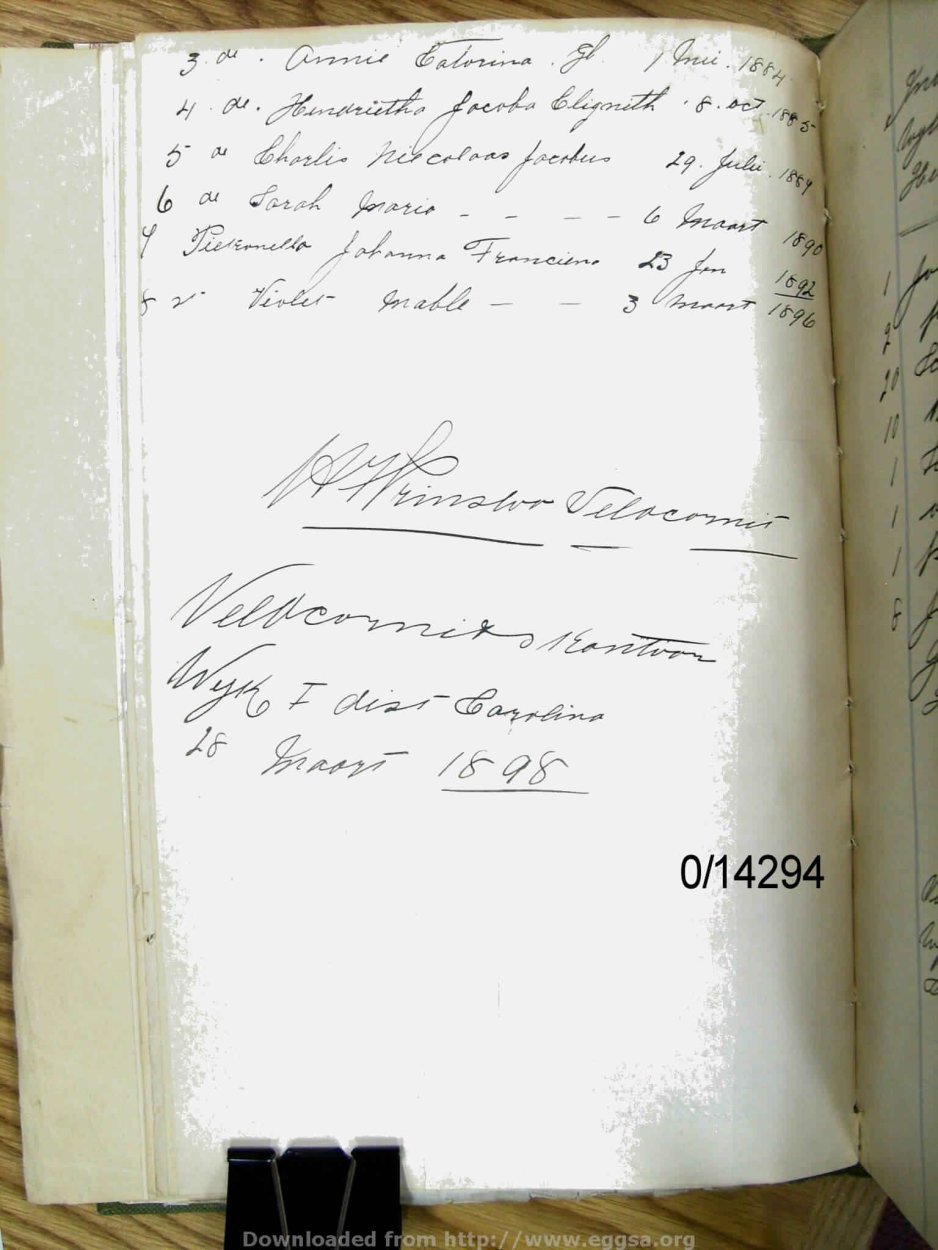 3 de. Annie Catorina. Gb. 1 Mei. 1884
4. de. Hendrietha Jacoba Eligneth. 8. Oct. 1885
5 de Charlis Niecolaas Jacobus 29. Julie. 1889
6 de Sarah Maria - - - - 6 Maart 1890
7 Pietronella Johanna Franciena 23 Jan 1892
8 Violet Mable - - 3 Maart 1896
Prinsloo Veldcornet
Veldcornets Kantoor
Wyk I dist Carolina
28 Maart 1898
0/14294
Downloaded from http://www.eggsa.org